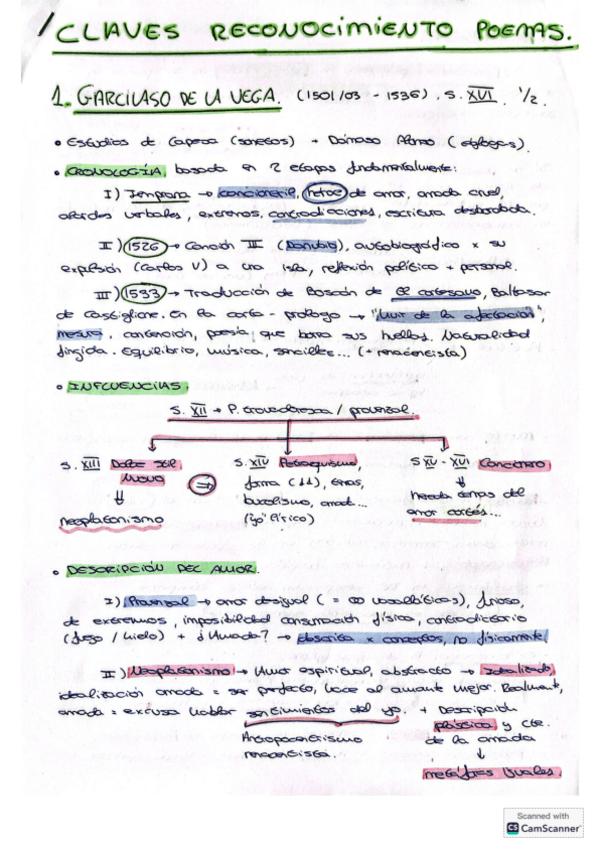 CLAVES RECONOCIMIENTO POEMAS.
1. GARCILASO DE LA VEGA. (1501/03 - 1536). S. XVI. 1/2.
• Estudios de Lapesa (sonetos) + Dámaso Alonso (églogas).
• CRONOLOGÍA, basada en 2 etapas fundamentalmente:
I) Temprana → cancioneril, de amor, amada cruel,
verbales, extremos, contradicciones, escritura desbordada.
II) 1526 → Canción III (Danubio), autobiográfico x su
expulsión (Carlos V) a una isla, reflexión política + personal.
III) 1533 → Traducción de Boscán de El cortesano, Baltasar
de Castiglione. En la corte - prólogo → "huir de la afectación",
mesura, contención, poesía que borra sus huellas. Naturalidad
fingida. Equilibrio, música, sencillez... (+ renacentista)
• INFLUENCIAS.
S. XII → P. trovadoresca / provenzal.
S. XIII Dolce Stil Nuovo
⇓
neoplatonismo
⇒
S. XIV Petrarquismo,
forma (11), temas,
bucolismo, amad...
("yo" lírico)
S XV - XVI Cancionero
↓
hereda temas del
amor cortés...
• DESCRIPCIÓN DEL AMOR.
I) Provenzal → amor desigual (= so vasallático), 
de extremos, imposibilidad consumación física, contradictorio
(fuego / hielo) + ¿Amada? → descrita x conceptos, no físicamente
II) Neoplatonismo → Amor espiritual, abstracto → Idealizado,
idealización amada = ser perfecto, hace al amante mejor. Realmente,
amada = excusa hablar sentimientos del yo. + Descripción
plástica y
de la amada
↓
metáforas
Antropocentrismo
renacentista.
Scanned with
CS CamScanner